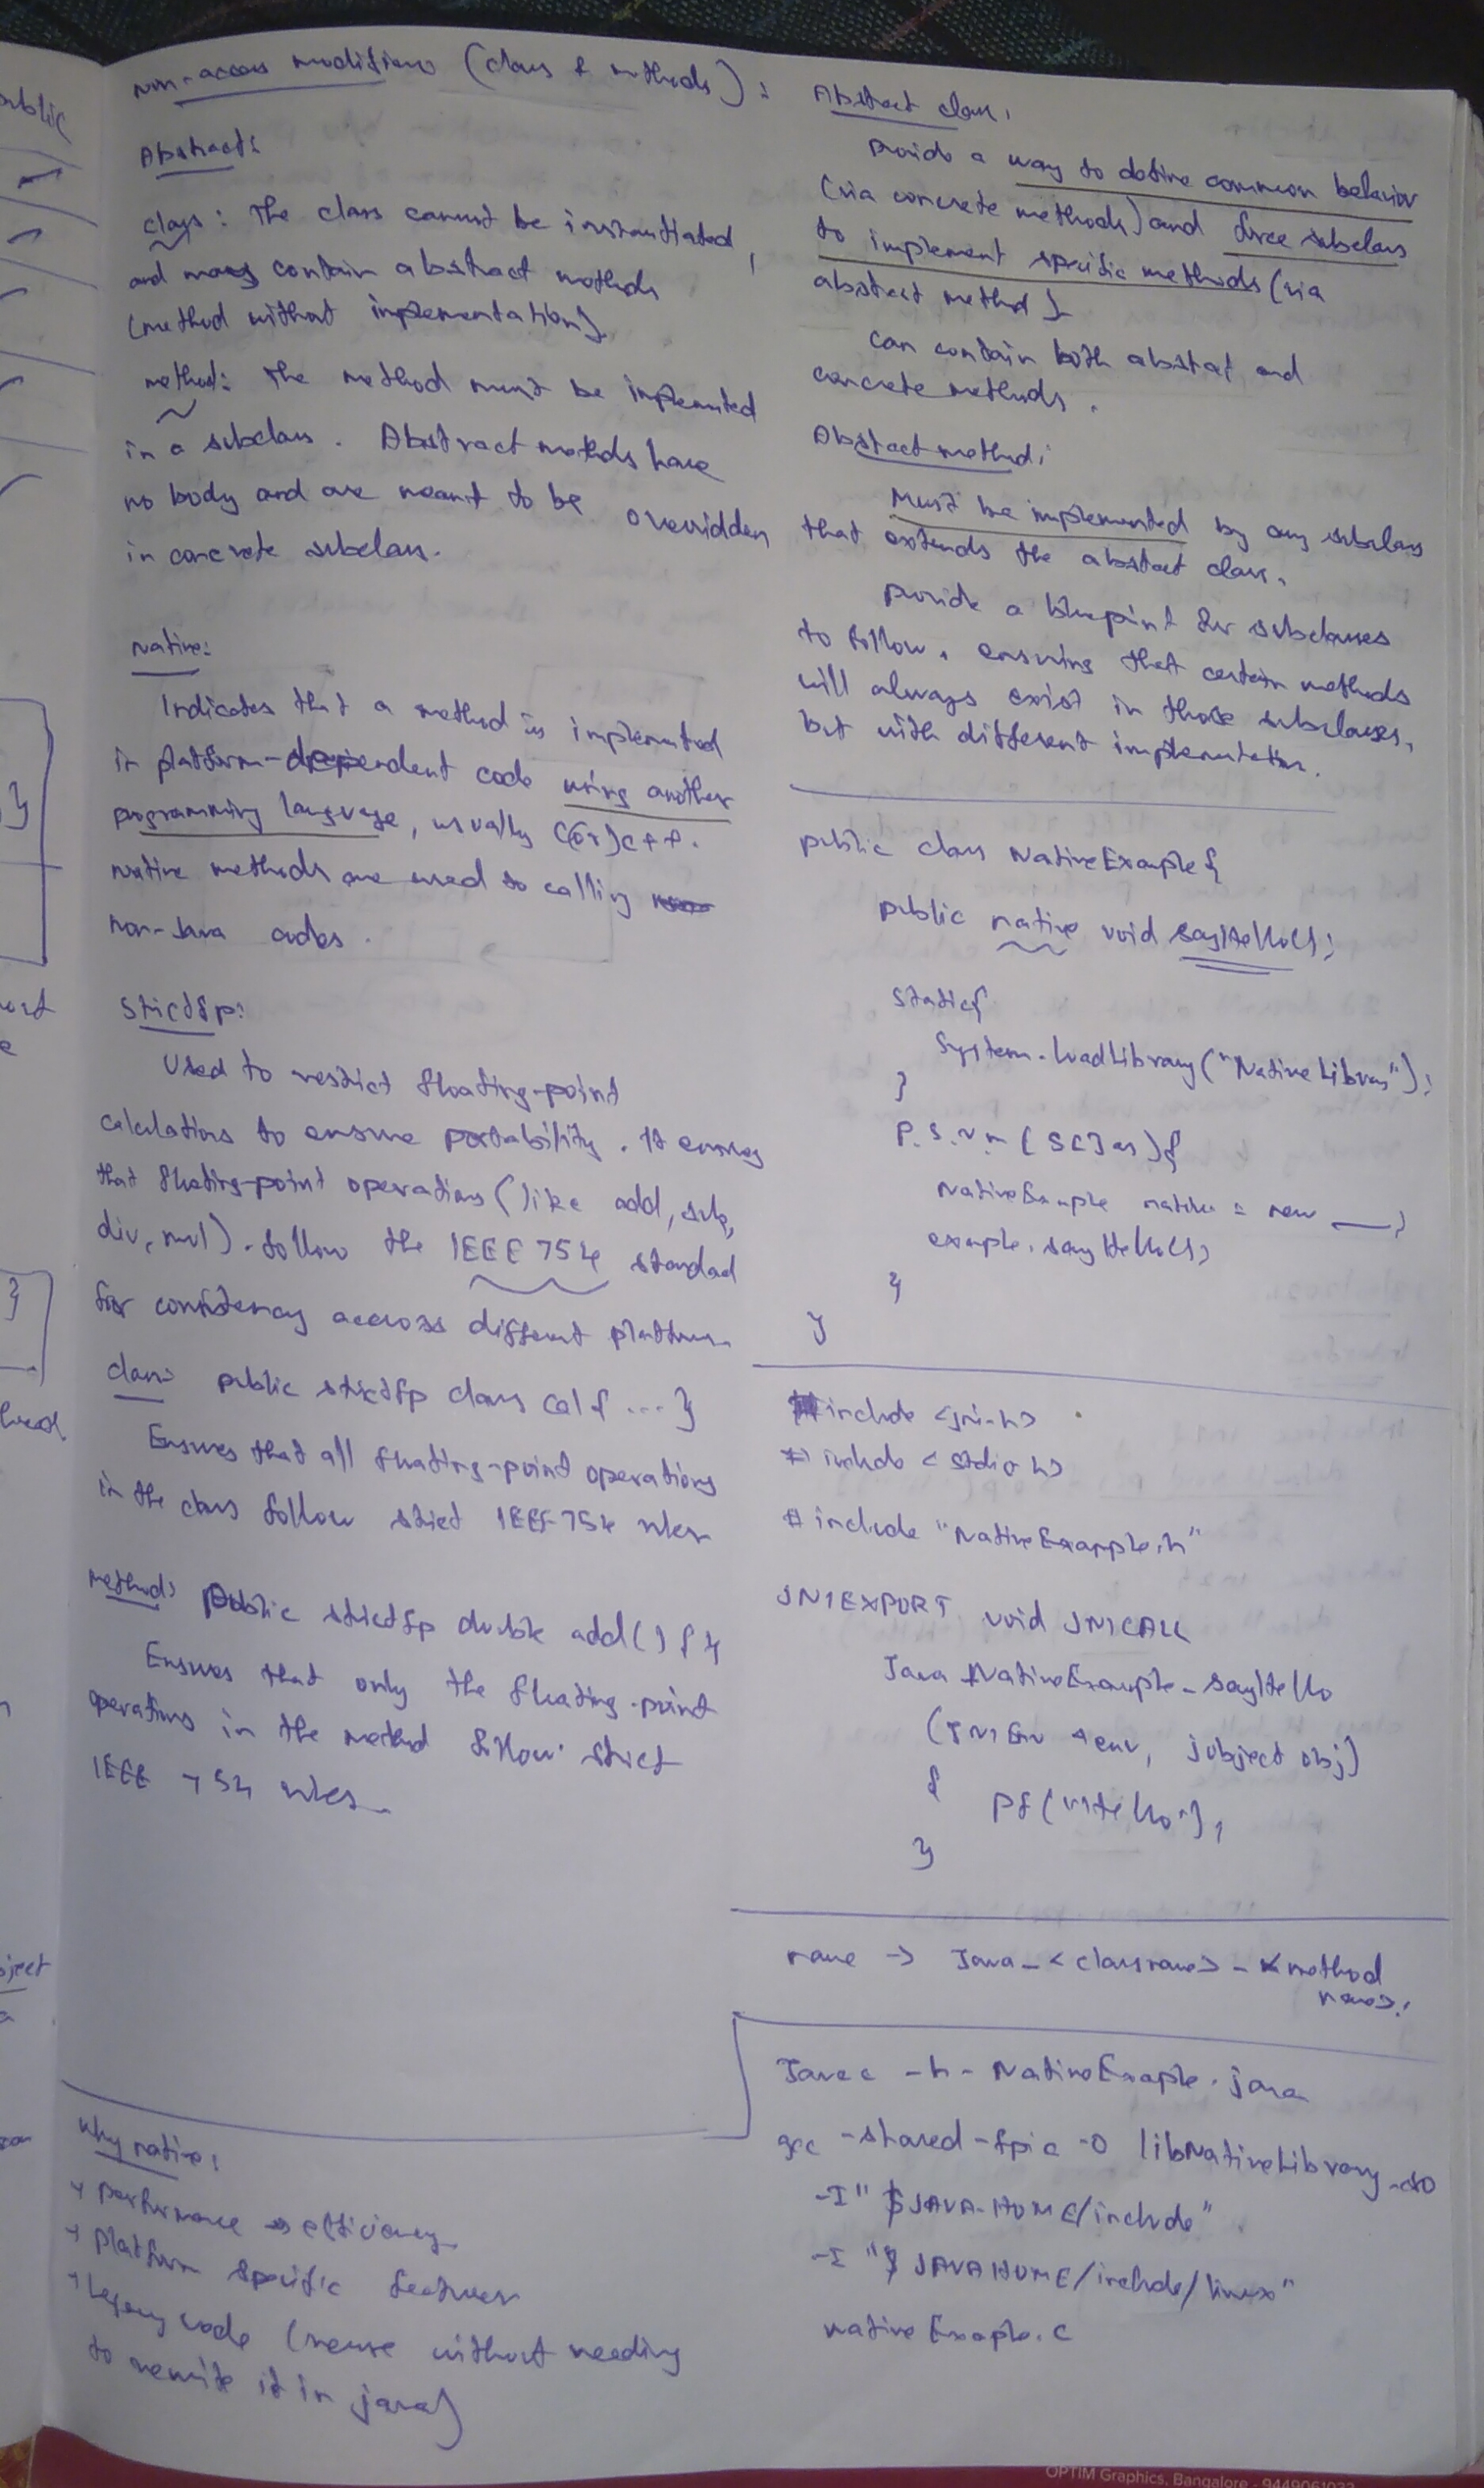 Non-access modifiers (class & methods):
Abstract:
class: The class cannot be instantiated,
and may contain abstract methods
(method without implementation).
method: The method must be implemented
in a subclass. Abstract methods have
no body and are meant to be overridden
in concrete subclass.
Native:
Indicates that a method is implemented
in platform-dependent code using another
programming language, usually C(or)C++.
Native methods are used to calling
non-Java codes.
Strictfp:
Used to restrict floating-point
calculations to ensure portability. It ensures
that floating-point operations (like add, sub,
div, mul). follow the IEEE 754 standard
for consistency accross different platforms
class: public strictfp class Cal { ... }
Ensures that all floating-point operations
in the class follow strict IEEE 754 rules
method: Public strictfp double add() { }
Ensures that only the floating-point
operations in the method follow strict
IEEE 754 rules.
Why native:
→ performance → efficiency
→ platform specific features
→ Legacy code (reuse without needing
to rewrite it in java)
Abstract class:
Provide a way to define common behavior
(via concrete methods) and force subclass
to implement specific methods (via
abstract method)
Can contain both abstract and
concrete methods.
Abstract method:
Must be implemented by any subclass
that extends the abstract class.
Provide a blueprint for subclasses
to follow, ensuring that certain methods
will always exist in those subclasses,
but with different implementation.
public class NativeExample{
public native void sayHello();
static{
System.loadLibrary("NativeLibrary");
}
P.S.V.m (S[] as){
NativeExample native = new ___;
example.sayHello();
}
}
#include <jni.h>
#include <stdio.h>
#include "NativeExample.h"
JNIEXPORT void JNICALL
Java_NativeExample_sayHello
(JNIEnv *env, jobject obj)
{
Pf("Hello");
}
name → Java_<classname>_<method
name>:
Javac -h - NativeExample.java
gcc -shared -fpic -o libNativeLibrary.so
-I"$JAVA-HOME/include"
-I "$JAVAHOME/include/linux"
nativeExample.c
public
}
ort
e
}
ject
a
OPTIM Graphics, Bangalore